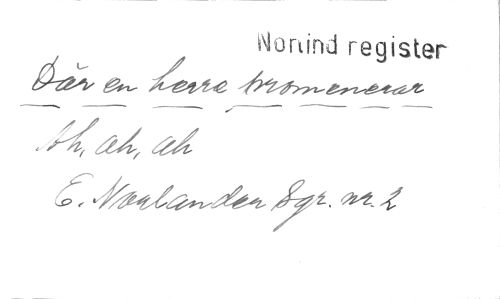 Norlind register
Där en herre promenerar
Ah, ah, ah
E. Norlander Sgr. nr. 2